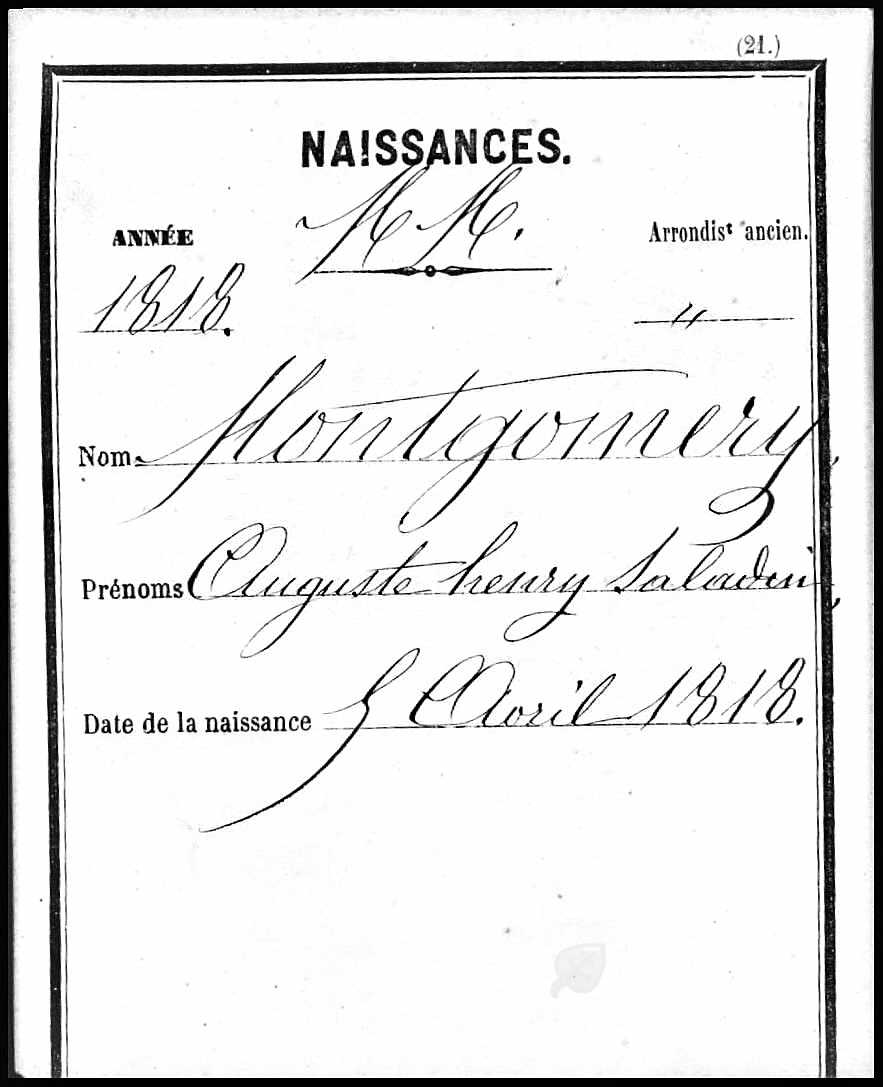 (21.)
NAISSANCES.
M M.
ANNÉE
Arrondist ancien.
1818.
"
Nom Montgomery,
Prénoms Auguste henry Saladin,
Date de la naissance 5 Avril 1818.